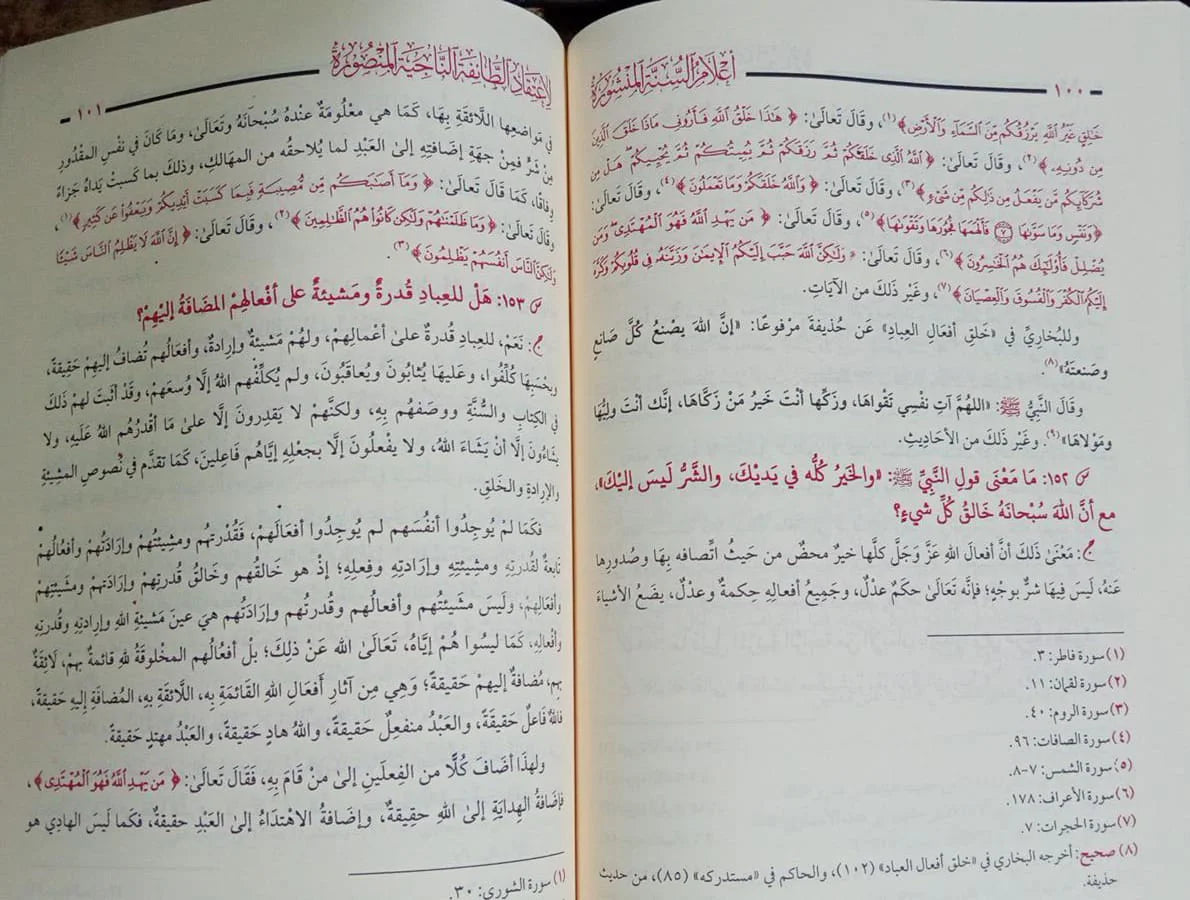 ١٠٠ أعلام السنة المنشورة
خَلِقٍ غَيْرُ اللَّهِ يَرْزُقُكُم مِّنَ السَّمَاءِ وَالْأَرْضِ﴾(١)، وقَالَ تَعالَىٰ: ﴿هَٰذَا خَلْقُ اللَّهِ فَأَرُونِي مَاذَا خَلَقَ الَّذِينَ
مِن دُونِهِ﴾(٢)، وقَالَ تَعالَىٰ: ﴿اللَّهُ الَّذِي خَلَقَكُمْ ثُمَّ رَزَقَكُمْ ثُمَّ يُمِيتُكُمْ ثُمَّ يُحْيِيكُمْ هَلْ مِن
شُرَكَائِكُم مَّن يَفْعَلُ مِن ذَٰلِكُم مِّن شَيْءٍ﴾(٣)، وقَالَ تَعالَىٰ: ﴿وَاللَّهُ خَلَقَكُمْ وَمَا تَعْمَلُونَ﴾(٤)، وقَالَ تَعالَىٰ:
﴿وَنَفْسٍ وَمَا سَوَّاهَا ۝٧ فَأَلْهَمَهَا فُجُورَهَا وَتَقْوَاهَا﴾(٥)، وقَالَ تَعالَىٰ: ﴿مَن يَهْدِ اللَّهُ فَهُوَ الْمُهْتَدِي وَمَن
يُضْلِلْ فَأُولَٰئِكَ هُمُ الْخَاسِرُونَ﴾(٦)، وقَالَ تَعالَىٰ: ﴿وَلَٰكِنَّ اللَّهَ حَبَّبَ إِلَيْكُمُ الْإِيمَانَ وَزَيَّنَهُ فِي قُلُوبِكُمْ وَكَرَّهَ
إِلَيْكُمُ الْكُفْرَ وَالْفُسُوقَ وَالْعِصْيَانَ﴾(٧)، وغَيْر ذَلكَ من الآيَاتِ.
وللبُخاريِّ في «خَلقِ أفعَال العِبادِ» عَن حُذيفةَ مرْفوعًا: «إنَّ اللهَ يصْنعُ كُلَّ صَانعٍ
وصَنعتَهُ»(٨).
وقَالَ النَّبيُّ ﷺ: «اللهمَّ آتِ نفْسِي تَقْواهَا، وزكِّها أنْتَ خَيرُ مَنْ زَكَّاهَا، إنَّك أنْتَ وليُّها
ومَوْلاهَا»(٩). وغَيْر ذَلكَ من الأحَاديثِ.
س ١٥٢: مَا مَعْنَى قولِ النَّبيِّ ﷺ: «والخَيرُ كُلُّه في يَديْكَ، والشَّرُّ لَيسَ إليْكَ»،
مع أنَّ اللهَ سُبْحانَهُ خَالقُ كُلِّ شيءٍ؟
ج: مَعْنَىٰ ذَلكَ أنَّ أفعَالَ اللهِ عَزَّ وَجَلَّ كلَّها خَيرٌ محْضٌ من حَيثُ اتِّصافه بِهَا وصُدورِها
عَنهُ، ليْسَ فِيهَا شرٌّ بوجْهٍ؛ فإنَّه تَعالَىٰ حكَمٌ عدْلٌ، وجَميعُ أفعالهِ حِكمةٌ وعدْلٌ، يضَعُ الأشيَاءَ
(١) سورة فاطر: ٣.
(٢) سورة لقمان: ١١.
(٣) سورة الروم: ٤٠.
(٤) سورة الصافات: ٩٦.
(٥) سورة الشمس: ٧-٨.
(٦) سورة الأعراف: ١٧٨.
(٧) سورة الحجرات: ٧.
(٨) صحيح: أخرجه البخاري في «خلق أفعال العباد» (١٠٢)، والحاكم في «مستدركه» (٨٥)، من حديث
حذيفة.
لاعتقاد الطائفة الناجية المنصورة ١٠١
في مَواضعِها اللَّائقةِ بِهَا، كَمَا هي معْلُومَةٌ عندَهُ سُبْحانَهُ وتَعالَىٰ، ومَا كَانَ في نَفْسِ المقْدُورِ
مِن شَرٍّ فمِنْ جِهةِ إضَافتهِ إلىٰ العَبْدِ لما يُلاحقُه من المهَالكِ، وذَلكَ بما كَسبتْ يَداهُ جَزاءً
وفاقًا، كَمَا قَالَ تَعالَىٰ: ﴿وَمَا أَصَابَكُم مِّن مُّصِيبَةٍ فَبِمَا كَسَبَتْ أَيْدِيكُمْ وَيَعْفُوا عَن كَثِيرٍ﴾(١)،
وقَالَ تَعالَىٰ: ﴿وَمَا ظَلَمْنَاهُمْ وَلَٰكِن كَانُوا هُمُ الظَّالِمِينَ﴾(٢)، وقَالَ تَعالَىٰ: ﴿إِنَّ اللَّهَ لَا يَظْلِمُ النَّاسَ شَيْئًا
وَلَٰكِنَّ النَّاسَ أَنفُسَهُمْ يَظْلِمُونَ﴾(٣).
س ١٥٣: هَلْ للعِبادِ قُدرةٌ ومَشيئةٌ على أفْعالهِمْ المضَافَةُ إليْهِمْ؟
ج: نَعَمْ، للعِبادِ قُدرةٌ علىٰ أعْمالِهمْ، ولهُمْ مَشيئَةٌ وإرادةٌ، وأفعَالُهم تُضافُ إليْهمْ حَقِيقَةً،
وبحَسَبِهَا كُلِّفُوا، وعَليهَا يُثابُونَ ويُعاقَبُونَ، ولم يُكلِّفْهم اللهُ إلَّا وُسعَهمْ، وقَدْ أثْبَتَ لَهمْ ذَلكَ
في الكِتابِ والسُّنَّةِ ووصَفهُم بِهِ، ولكنَّهمْ لا يَقدِرونَ إلَّا علىٰ مَا أقْدَرُهُم اللهُ عَلَيهِ، ولا
يشَاءُونَ إلَّا أنْ يَشَاءَ اللهُ، ولا يفْعلُونَ إلَّا بجعْلهِ إيَّاهُم فَاعِلينَ، كَمَا تقدَّم في نصُوصِ المشِيئَةِ
والإرادةِ والخَلقِ.
فكَمَا لمْ يُوجِدُوا أنفُسَهم لم يُوجِدُوا أفعَالَهمْ، فَقُدْرتُهم ومشِيئَتُهمْ وإرَادَتُهم وأفْعالُهمْ
تَابعةٌ لقُدرَتِهِ ومشِيئَتِهِ وإرَادتِهِ وفِعلِهِ؛ إذْ هو خَالقُهم وخَالقُ قُدرتِهمْ وإرَادَتهمْ ومَشيئَتِهمْ
وأفعَالِهمْ، ولَيسَ مَشيئَتُهم وأفعَالُهم وقُدرتُهم وإرَادَتُهم هيَ عينَ مَشيئَةِ اللهِ وإرادتِهِ وقُدرتِهِ
وأفعَالِهِ، كَمَا ليسُوا هُمْ إيَّاهُ، تَعَالَىٰ الله عَنْ ذلِكَ؛ بلْ أفعَالُهم المخْلوقَةُ للهِ قائمةٌ بهِمْ، لَائقَةٌ
بهِم، مُضافةٌ إليهمْ حَقيقةً؛ وَهِي مِن آثارِ أَفعَالِ اللهِ القَائمَةِ بِه، اللَّائقَةِ بِهِ، المُضافَةِ إليهِ حَقيقةً،
فاللهُ فَاعلٌ حَقيقَةً، والعَبْدُ منفعِلٌ حَقيقةً، واللهُ هادٍ حَقيقةً، والعَبْدُ مهتدٍ حَقيقةً.
ولهذَا أضَافَ كُلًّا من الفعلَينِ إلىٰ مَنْ قَامَ بِهِ، فَقَالَ تَعَالَىٰ: ﴿مَن يَهْدِ اللَّهُ فَهُوَ الْمُهْتَدِي﴾،
فإضَافةُ الهِدَايَةِ إلىٰ اللهِ حقِيقةٌ، وإضَافةُ الاهْتدَاءُ إلىٰ العَبْدِ حقيقةٌ، فكَما لَيسَ الهادِي هو
(١) سورة الشورى: ٣٠.